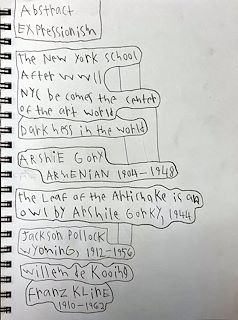 Abstract
EXPressionism
the New York school
After WWII
NYC be comes the center
of the art world
Darkness in the world
ArshiE Gory
ArmENIAN 1904-1948
the Leaf of the Artichoke is an
owl by Arshile Gorky, 1944
Jackson Pollock
wyoming, 1912-1956
Willem de Kooing
Franz KLINE
1910-1962